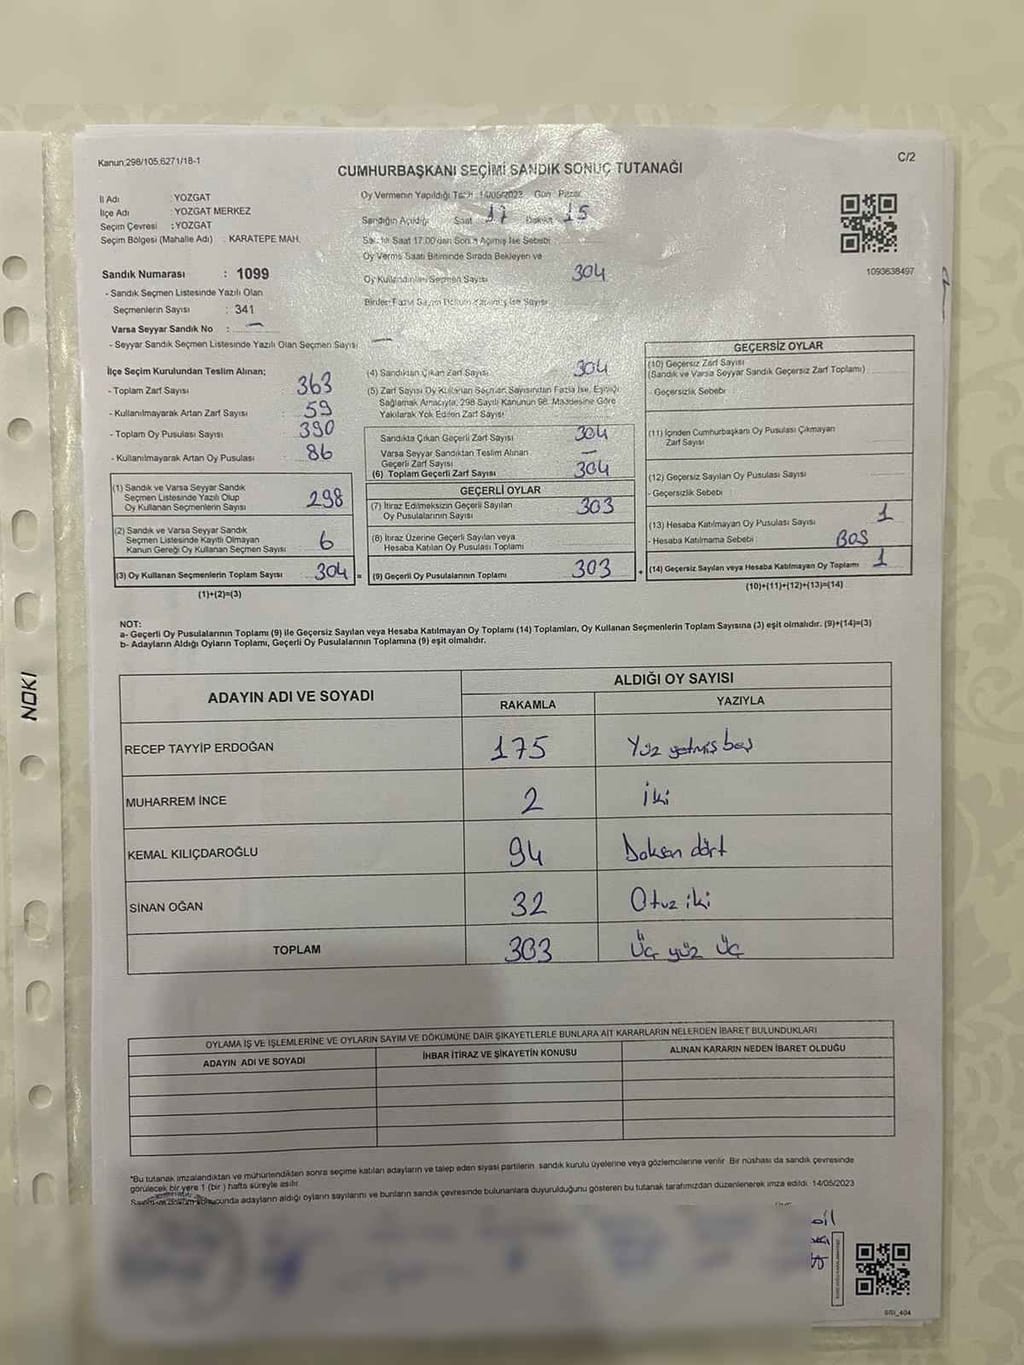 Kanun,298/105,6271/18-1
C/2
CUMHURBAŞKANI SEÇİMİ SANDIK SONUÇ TUTANAĞI
İl Adı : YOZGAT
İlçe Adı : YOZGAT MERKEZ
Seçim Çevresi : YOZGAT
Seçim Bölgesi (Mahalle Adı) : KARATEPE MAH.
Sandık Numarası : 1099
- Sandık Seçmen Listesinde Yazılı Olan
Seçmenlerin Sayısı : 341
Varsa Seyyar Sandık No : —
- Seyyar Sandık Seçmen Listesinde Yazılı Olan Seçmen Sayısı —
Oy Vermenin Yapıldığı Tarih 14/05/2023 Gün Pazar
Sandığın Açıldığı Saat 17 Dakika 15
Sandık Saat 17.00'dan Sonra Açılmış İse Sebebi
Oy Verme Saati Bitiminde Sırada Bekleyen ve
Oy Kullandırılan Seçmen Sayısı 304
1093638497
İlçe Seçim Kurulundan Teslim Alınan;
- Toplam Zarf Sayısı 363
- Kullanılmayarak Artan Zarf Sayısı 59
- Toplam Oy Pusulası Sayısı 390
- Kullanılmayarak Artan Oy Pusulası 86
(1) Sandık ve Varsa Seyyar Sandık
Seçmen Listesinde Yazılı Olup
Oy Kullanan Seçmenlerin Sayısı 298
(2) Sandık ve Varsa Seyyar Sandık
Seçmen Listesinde Kayıtlı Olmayan
Kanun Gereği Oy Kullanan Seçmen Sayısı 6
(3) Oy Kullanan Seçmenlerin Toplam Sayısı 304
(1)+(2)=(3)
(4) Sandıktan Çıkan Zarf Sayısı 304
(5) Zarf Sayısı Oy Kullanan Seçmen Sayısından Fazla İse, Eşitliği
Sağlamak Amacıyla, 298 Sayılı Kanunun 98. Maddesine Göre
Yakılarak Yok Edilen Zarf Sayısı
Sandıkta Çıkan Geçerli Zarf Sayısı 304
Varsa Seyyar Sandıktan Teslim Alınan
Geçerli Zarf Sayısı —
(6) Toplam Geçerli Zarf Sayısı 304
GEÇERLİ OYLAR
(7) İtiraz Edilmeksizin Geçerli Sayılan
Oy Pusulalarının Sayısı 303
(8) İtiraz Üzerine Geçerli Sayılan veya
Hesaba Katılan Oy Pusulası Toplamı
= (9) Geçerli Oy Pusulalarının Toplamı 303
GEÇERSİZ OYLAR
(10) Geçersiz Zarf Sayısı
(Sandık ve Varsa Seyyar Sandık Geçersiz Zarf Toplamı)
- Geçersizlik Sebebi
(11) İçinden Cumhurbaşkanı Oy Pusulası Çıkmayan
Zarf Sayısı
(12) Geçersiz Sayılan Oy Pusulası Sayısı
- Geçersizlik Sebebi
(13) Hesaba Katılmayan Oy Pusulası Sayısı 1
- Hesaba Katılmama Sebebi BOŞ
+ (14) Geçersiz Sayılan veya Hesaba Katılmayan Oy Toplamı 1
(10)+(11)+(12)+(13)=(14)
NOT:
a- Geçerli Oy Pusulalarının Toplamı (9) ile Geçersiz Sayılan veya Hesaba Katılmayan Oy Toplamı (14) Toplamları, Oy Kullanan Seçmenlerin Toplam Sayısına (3) eşit olmalıdır. (9)+(14)=(3)
b- Adayların Aldığı Oyların Toplamı, Geçerli Oy Pusulalarının Toplamına (9) eşit olmalıdır.
ADAYIN ADI VE SOYADI
ALDIĞI OY SAYISI
RAKAMLA YAZIYLA
RECEP TAYYİP ERDOĞAN 175 Yüz yetmiş beş
MUHARREM İNCE 2 İki
KEMAL KILIÇDAROĞLU 94 Doksan dört
SİNAN OĞAN 32 Otuz iki
TOPLAM 303 Üç yüz üç
OYLAMA İŞ VE İŞLEMLERİNE VE OYLARIN SAYIM VE DÖKÜMÜNE DAİR ŞİKAYETLERLE BUNLARA AİT KARARLARIN NELERDEN İBARET BULUNDUKLARI
ADAYIN ADI VE SOYADI İHBAR İTİRAZ VE ŞİKAYETİN KONUSU ALINAN KARARIN NEDEN İBARET OLDUĞU
*Bu tutanak imzalandıktan ve mühürlendikten sonra seçime katılan adayların ve talep eden siyasi partilerin sandık kurulu üyelerine veya gözlemcilerine verilir. Bir nüshası da sandık çevresinde
görülecek bir yere 1 (bir) hafta süreyle asılır.
Sayım ve döküm sonucunda adayların aldığı oyların sayılarını ve bunların sandık çevresinde bulunanlara duyurulduğunu gösteren bu tutanak tarafımızdan düzenlenerek imza edildi. 14/05/2023
NOKI